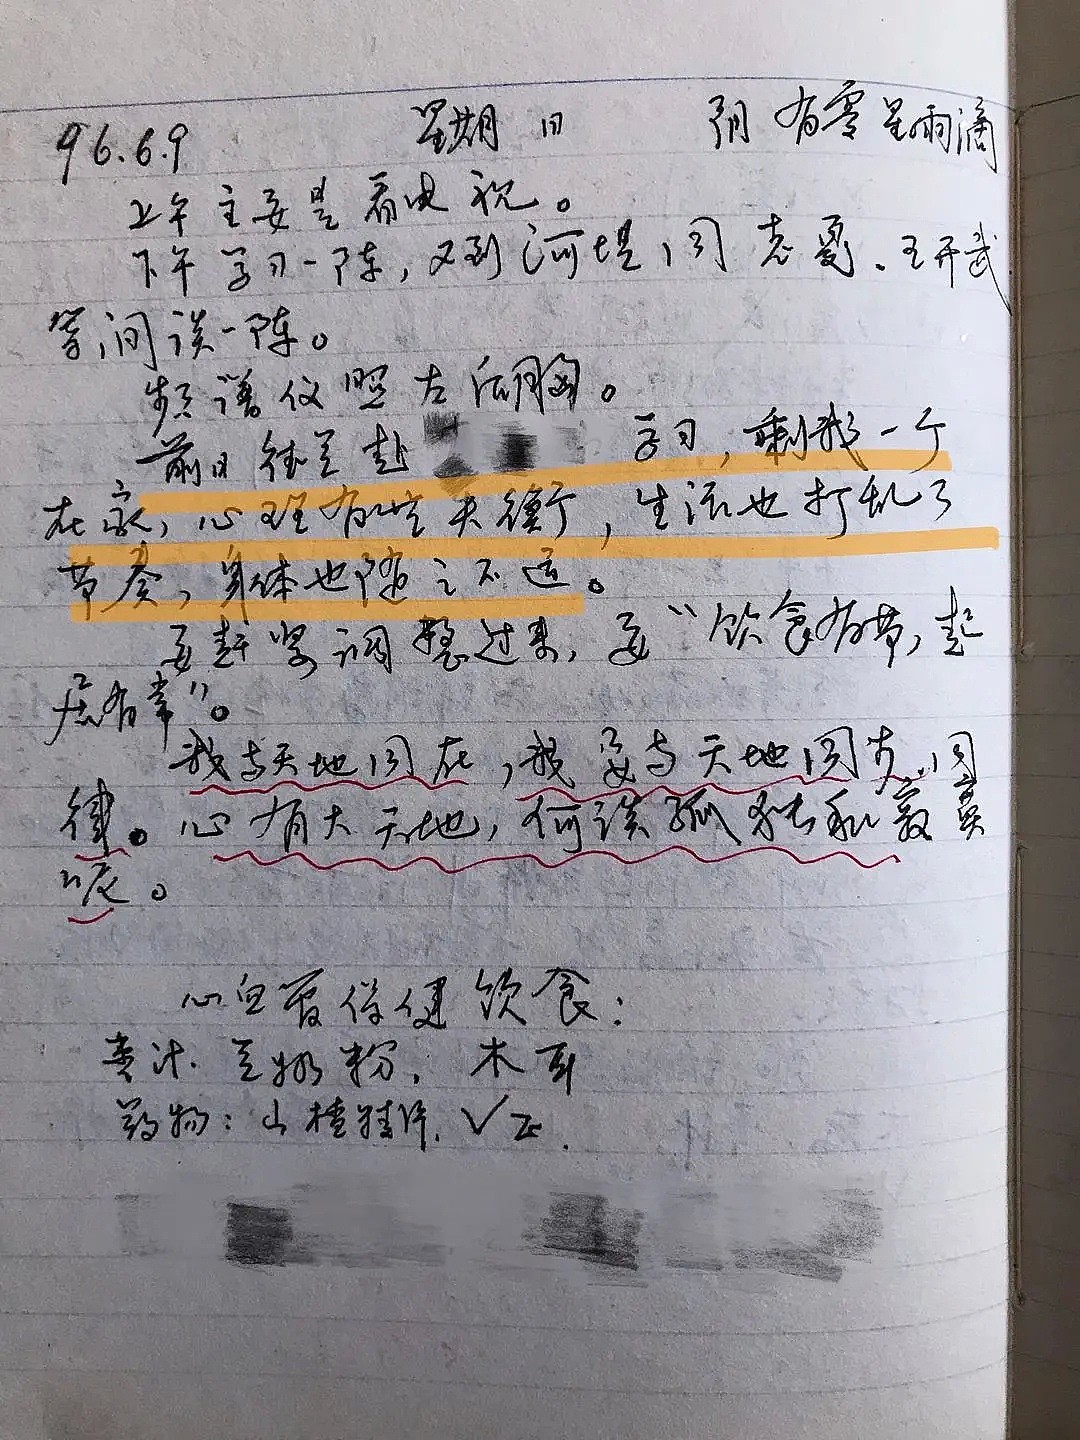 96.6.9 星期日 阴 有零星雨滴
上午主要是看电视。
下午学习一阵，又到河堤同志夏、王开武
等闲谈一阵。
频谱仪照左后胸。
前日 赴 学习，剩我一个
在家，心理有些失衡，生活也打乱了
节奏，身体也随之不适。
要赶紧调整过来，要“饮食有节，起
居有常”。
我与天地同在，我要与天地同步、同
律。心有大天地，何谈孤独和寂寞
哎。
心血管保健饮食：
豆奶粉，木耳
药物：山楂精片、VE.